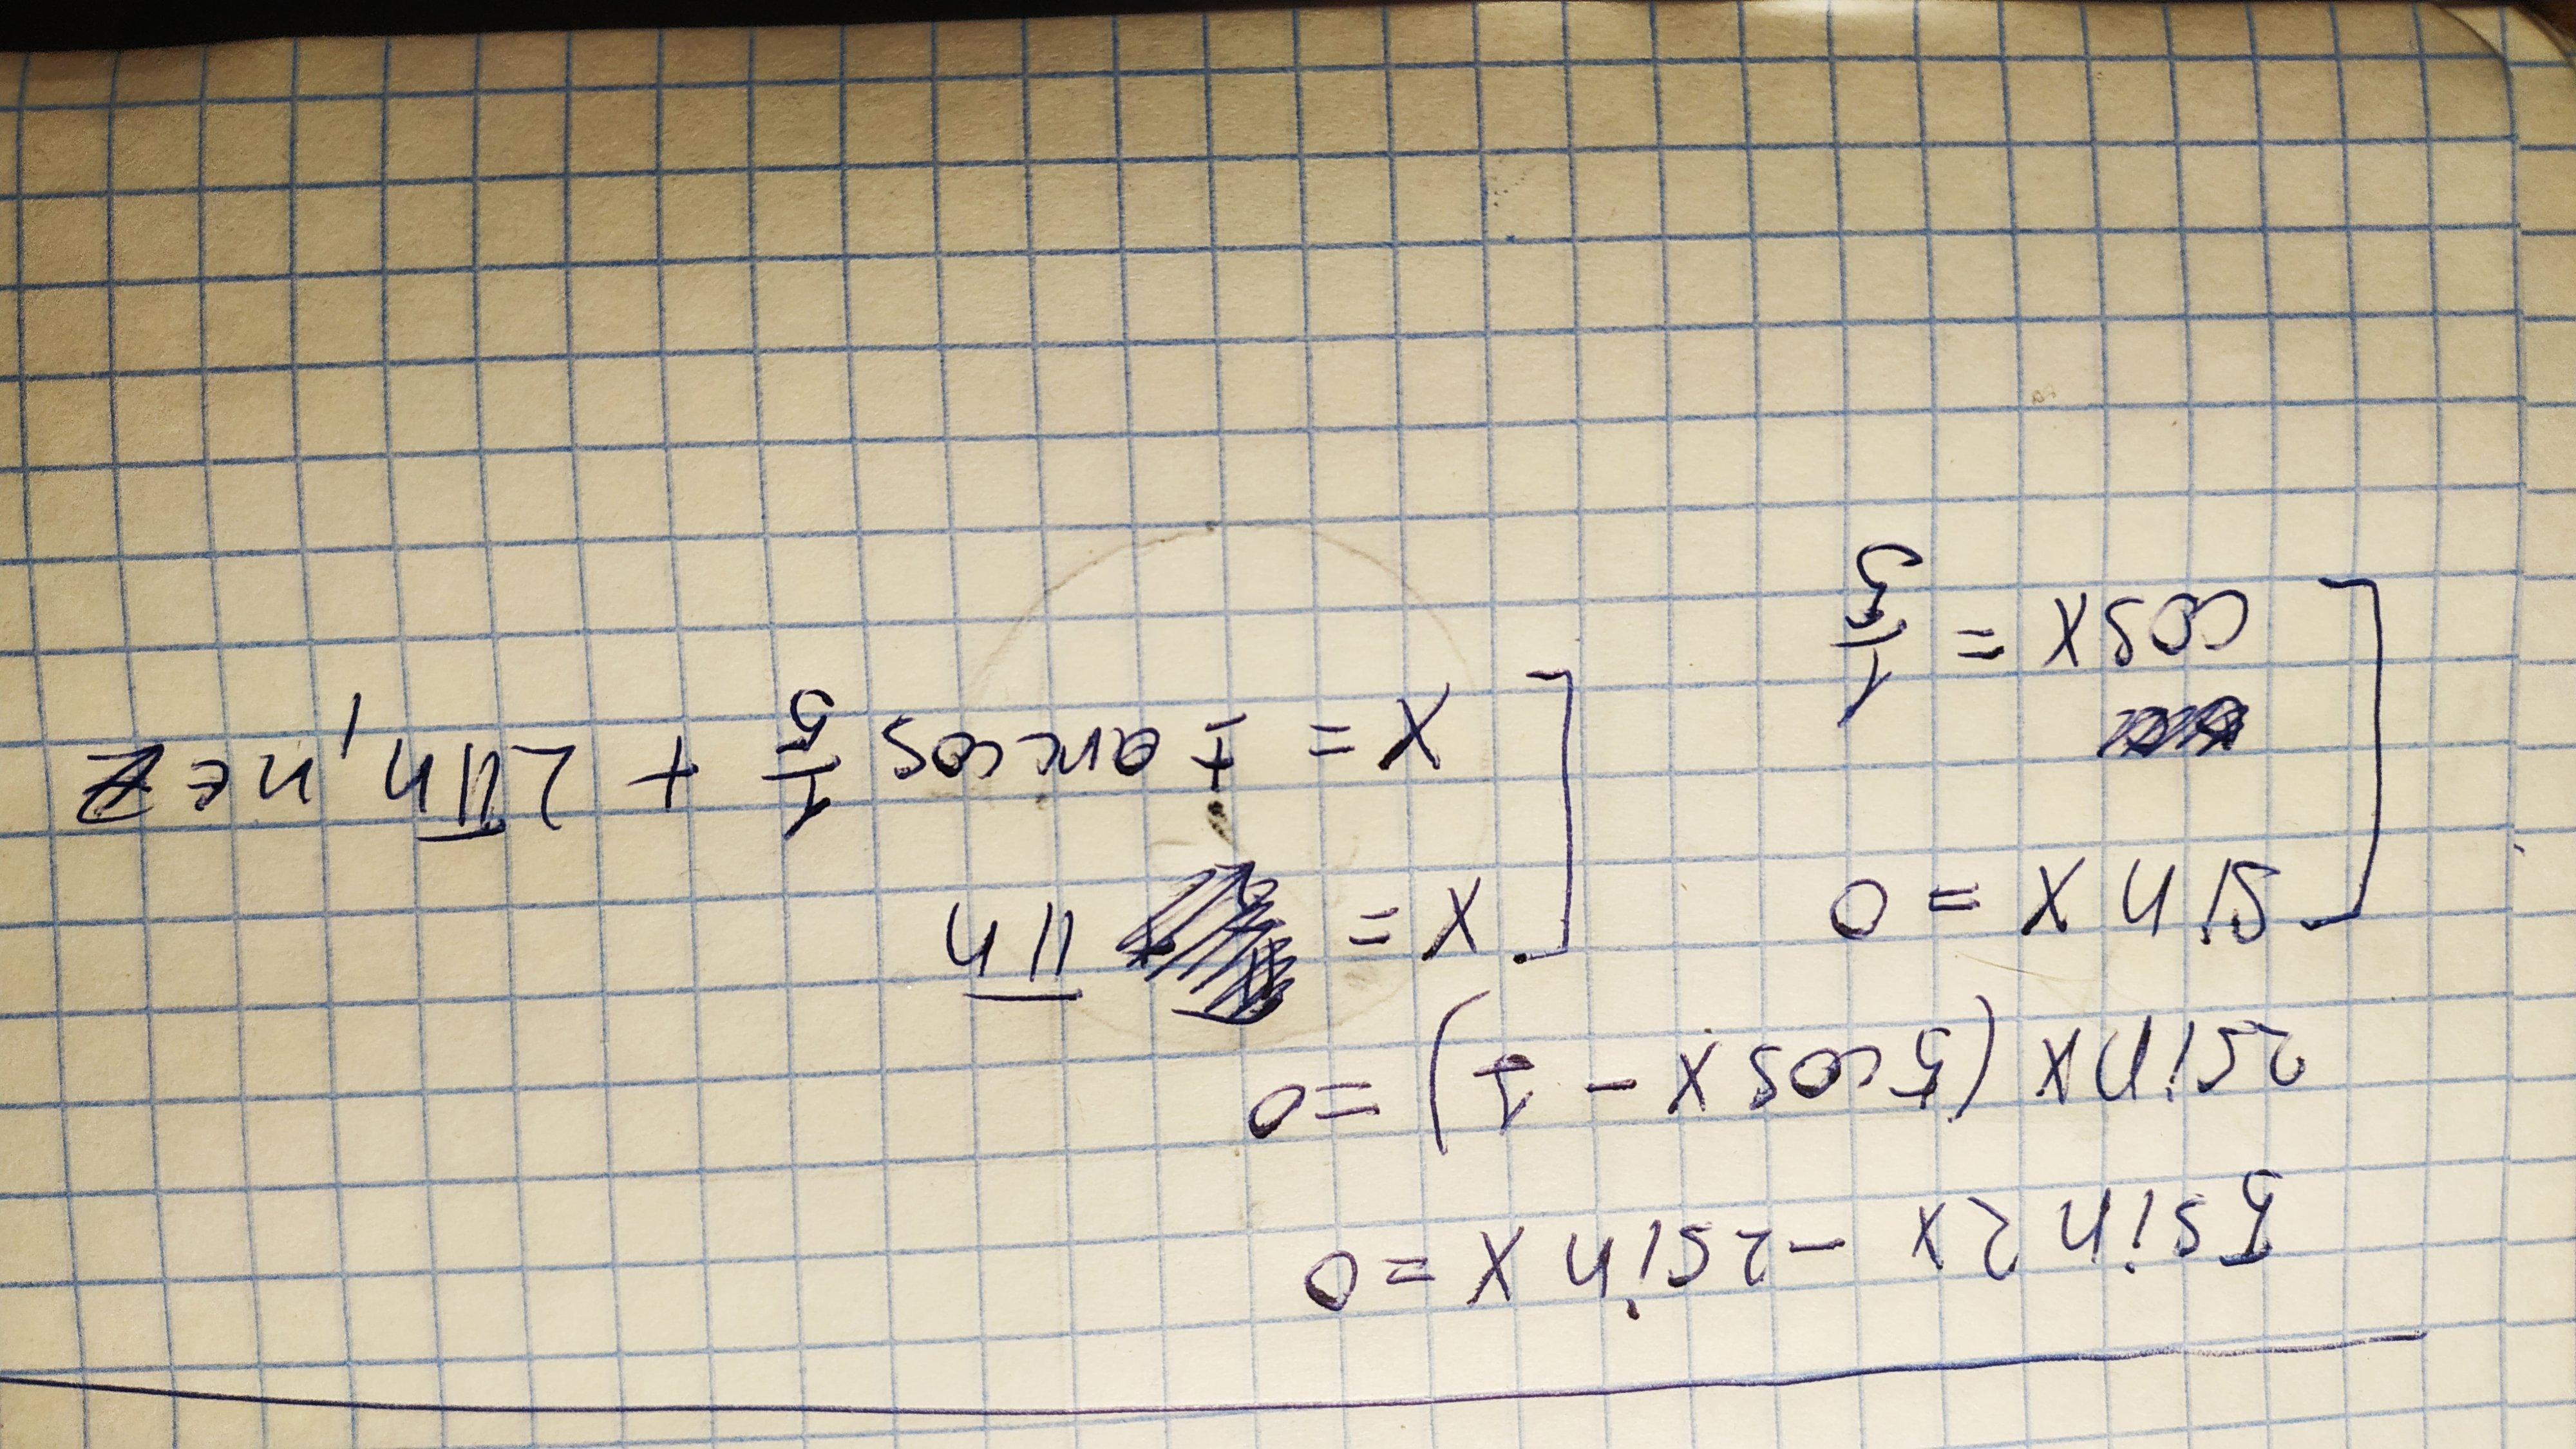 5sin2x - 2sinx = 0
2sinx(5cosx - 1) = 0
[ sinx = 0
cosx = 1/5
[ x = πn
x = ± arccos 1/5 + 2πn, n∈Z